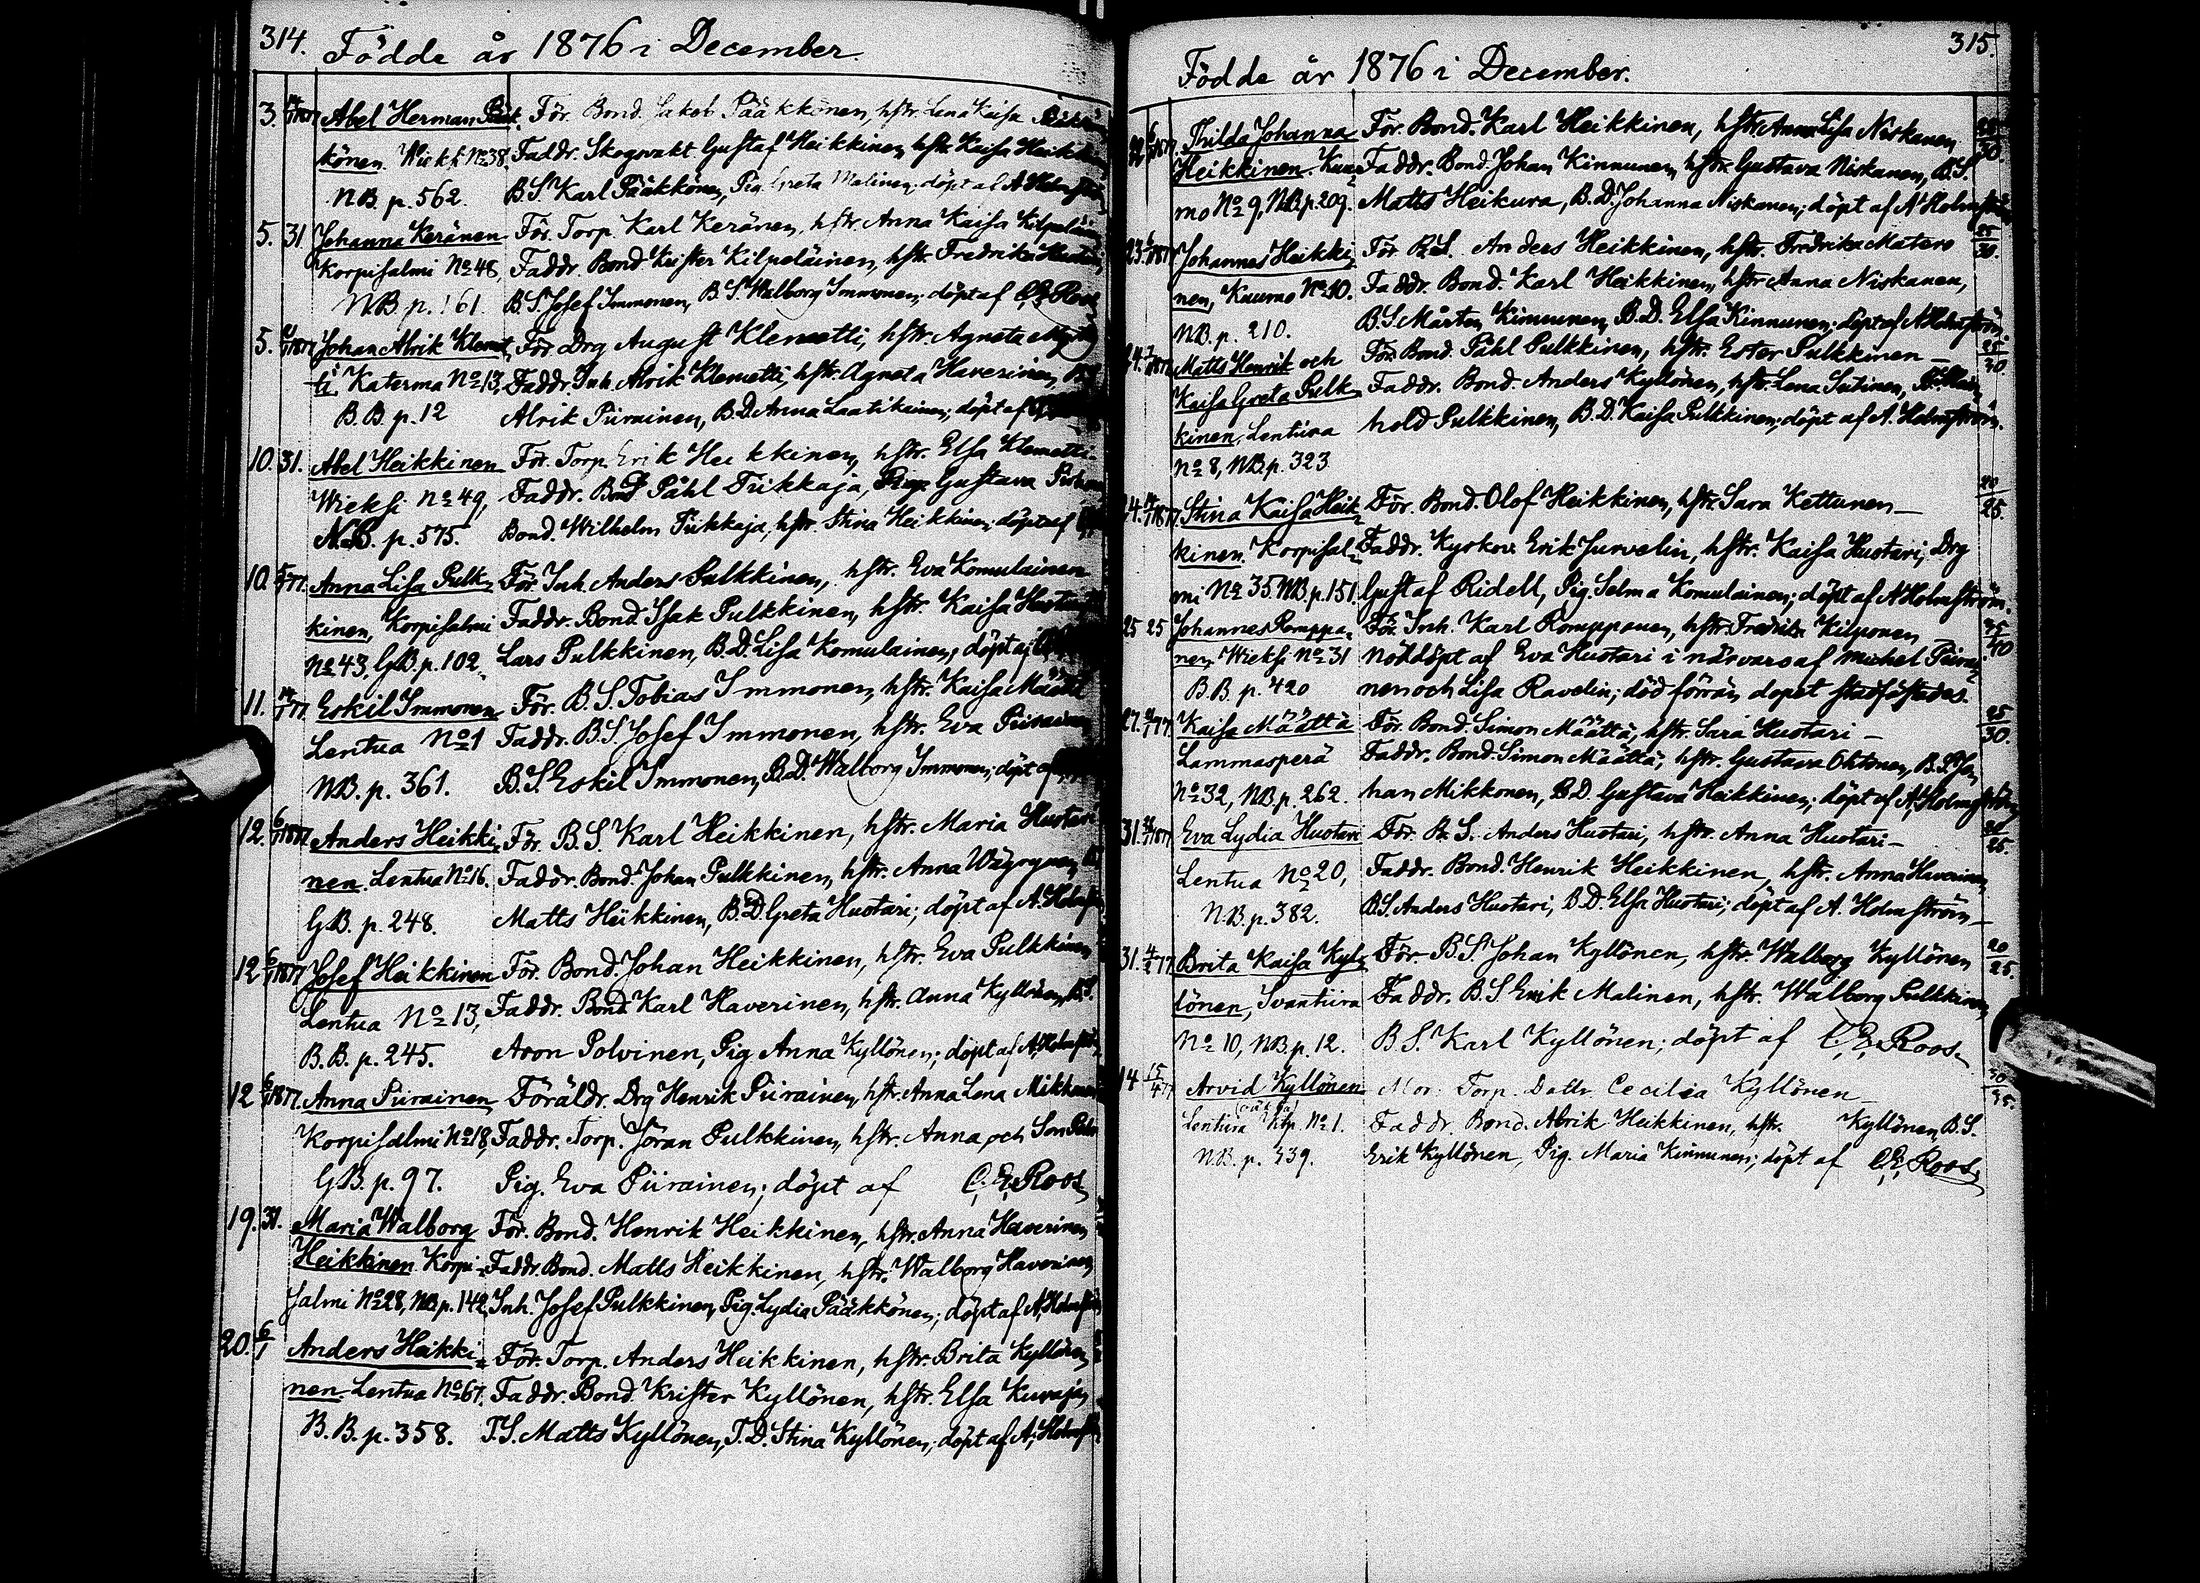 314. Födde år 1876 i December.
3. Abel Herman Pääk- För. Bond. Jakob Pääkkönen, hstr. Lena Kaisa
könen. Wieksi No 38. Faddr. Skogsvakt Gustaf Heikkinen, hstr. Kaisa Heikkinen
NB. p. 562. B.S. Karl Pääkkönen, Pig. Greta Malinen; döpt af A. Holmström
5. 31. Johanna Keränen För. Torp. Karl Keränen, hstr. Anna Kaisa Kilpeläinen
Korpisalmi No 48, Faddr. Bond. Krister Kilpeläinen, hstr. Fredrika
NB. p. 161. B.S. Josef Immonen, B.S. Walborg Immonen; döpt af C.E. Roos
5. Johan Alrik Klemet- För. Drg August Klemetti, hstr. Agneta
ti, Katerma No 13, Faddr. Inh. Alrik Klemetti, hstr. Agneta Haverinen,
B.B. p. 12 Alrik Piirainen, B.D. Anna Laatikainen; döpt af
10. 31. Abel Heikkinen För. Torp. Erik Heikkinen, hstr. Elsa Klemetti
Wieksi No 49, Faddr. Bond. Påhl Tiikkaja, Pig. Gustava
N.B. p. 575. Bond. Wilhelm Tiikkaja, hstr. Stina Heikkinen; döpt af
10. Anna Lisa Pulk- För. Inh. Anders Pulkkinen, hstr. Eva Komulainen
kinen, Korpisalmi Faddr. Bond. Isak Pulkkinen, hstr. Kaisa
No 43, G.B. p. 102. Lars Pulkkinen, B.D. Lisa Komulainen; döpt af
11. 14/1 77. Eskil Immonen För. B.S. Tobias Immonen, hstr. Kaisa Määttä
Lentua No 1 Faddr. B.S. Josef Immonen, hstr. Eva Piirainen,
NB. p. 361. B.S. Eskil Immonen, B.D. Walborg Immonen; döpt af
12. 6/1 1877. Anders Heikki- För. B.S. Karl Heikkinen, hstr. Maria Huotari
nen. Lentua No 16. Faddr. Bond. Johan Pulkkinen, hstr. Anna Väyrynen,
G.B. p. 248. Matts Heikkinen, B.D. Greta Huotari; döpt af A. Holmström
12. 6/1 1877. Josef Heikkinen För. Bond. Johan Heikkinen, hstr. Eva Pulkkinen
Lentua No 13, Faddr. Bond. Karl Haverinen, hstr. Anna Kyllönen, B.S.
B.B. p. 245. Aron Polvinen, Pig. Anna Kyllönen; döpt af A. Holmström
12 6/1 1877. Anna Piirainen Föräldr. Drg Henrik Piirainen, hstr. Anna Lena Mikkonen
Korpisalmi No 18, Faddr. Torp. Jöran Pulkkinen, hstr. Anna och Son
G.B. p. 97. Pig. Eva Piirainen; döpt af C.E. Roos
19. 31. Maria Walborg För. Bond. Henrik Heikkinen, hstr. Anna Haverinen
Heikkinen Korpi- Faddr. Bond. Matts Heikkinen, hstr. Walborg Haverinen
salmi No 28, NB p. 142, Inh. Josef Pulkkinen, Pig. Lydia Pääkkönen; döpt af A. Holmström
20. 6/1 Anders Heikki- För. Torp. Anders Heikkinen, hstr. Brita Kyllönen,
nen. Lentua No 67. Faddr. Bond. Krister Kyllönen, hstr. Elsa Kuvaja,
B.B. p. 358. T.S. Matts Kyllönen, T.D. Stina Kyllönen; döpt af A. Holmström
315.
Födde år 1876 i December.
22 6/1 1877. Thilda Johanna För. Bond. Karl Heikkinen, hstr. Anna Lisa Niskanen, 25/30.
Heikkinen. Kuu- Faddr. Bond. Johan Kinnunen, hstr. Gustava Niskanen, B.S.
mo No 9, NB. p. 209. Matts Heikura, B.D. Johanna Niskanen; döpt af A. Holmström
23. 6/1 1877 Johannes Heikki- För. B.S. Anders Heikkinen, hstr. Fredrika Matero 25/30.
nen, Kuumo No 10. Faddr. Bond. Karl Heikkinen, hstr. Anna Niskanen,
NB. p. 210. B.S. Mårten Kinnunen, B.D. Elsa Kinnunen; döpt af A. Holmström.
24. Matts Henrik och För. Bond. Påhl Pulkkinen, hstr. Ester Pulkkinen – 25/30.
Kaisa Greta Pulk- Faddr. Bond. Anders Kyllönen, hstr. Lena Sutinen,
kinen, Lentiira hold Pulkkinen, B.D. Kaisa Pulkkinen; döpt af A. Holmström.
No 8, NB. p. 323
24. Stina Kaisa Heik- För. Bond. Olof Heikkinen, hstr. Sara Kettunen – 20/25.
kinen. Korpisal- Faddr. Kyrkov. Erik Jurvelin, hstr. Kaisa Huotari, Drg
mi No 35. NB. p. 151. Gustaf Ridell, Pig. Selma Komulainen; döpt af A. Holmström.
25 25 Johannes Romppa- För. Inh. Karl Romppanen, hstr. Fredrika Kilponen – 35/40
nen. Wieksi No 31 nöddöpt af Eva Huotari i närvaro af Michel Piirai-
B.B. p. 420 nen och Lisa Ravelin; död förrän dopet stadfästades.
27. Kaisa Määttä För. Bond. Simon Määttä, hstr. Sara Huotari – 25/30.
Lammasperä Faddr. Bond. Simon Määttä, hstr. Gustava Ohtonen, B.S. Jo-
No 32, NB. p. 262. han Mikkonen, B.D. Gustava Heikkinen; döpt af A. Holmström
31. Eva Lydia Huotari För. B.S. Anders Huotari, hstr. Anna Huotari – 20/25.
Lentua No 20, Faddr. Bond. Henrik Heikkinen, hstr. Anna Haverinen
N.B. p. 382. B.S. Anders Huotari, B.D. Elsa Huotari; döpt af A. Holmström –
31. 4/2 77. Brita Kaisa Kyl- För. B.S. Johan Kyllönen, hstr. Walborg Kyllönen 20/25.
lönen, Ivantiira Faddr. B.S. Erik Malinen, hstr. Walborg Pulkkinen,
No 10, NB. p. 12. B.S. Karl Kyllönen; döpt af C.E. Roos.
14 15/4 77 Arvid Kyllönen Mor: Torp. Dottr. Cecilia Kyllönen – 30/35.
(oäkta)
Lentiira Ktp. No 1. Faddr. Bond. Alrik Heikkinen, hstr. Kyllönen, B.S.
NB. p. 339. Erik Kyllönen, Pig. Maria Kinnunen; döpt af C.E. Roos.